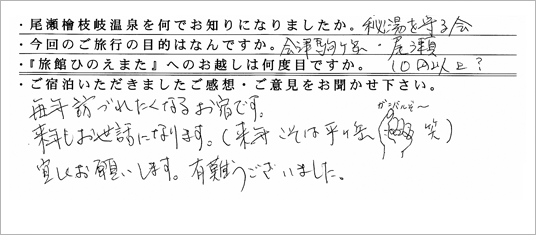 ・尾瀬檜枝岐温泉を何でお知りになりましたか。秘湯を守る会
・今回のご旅行の目的はなんですか。会津駒ヶ岳・尾瀬
・『旅館ひのえまた』へのお越しは何度目ですか。10回以上?
・ご宿泊いただきましたご感想・ご意見をお聞かせ下さい。
毎年訪づれたくなるお宿です。
ガンバルぞ〜
来年もお世話になります。(来年こそは平ヶ岳 笑)
宜しくお願いします。有難うございました。